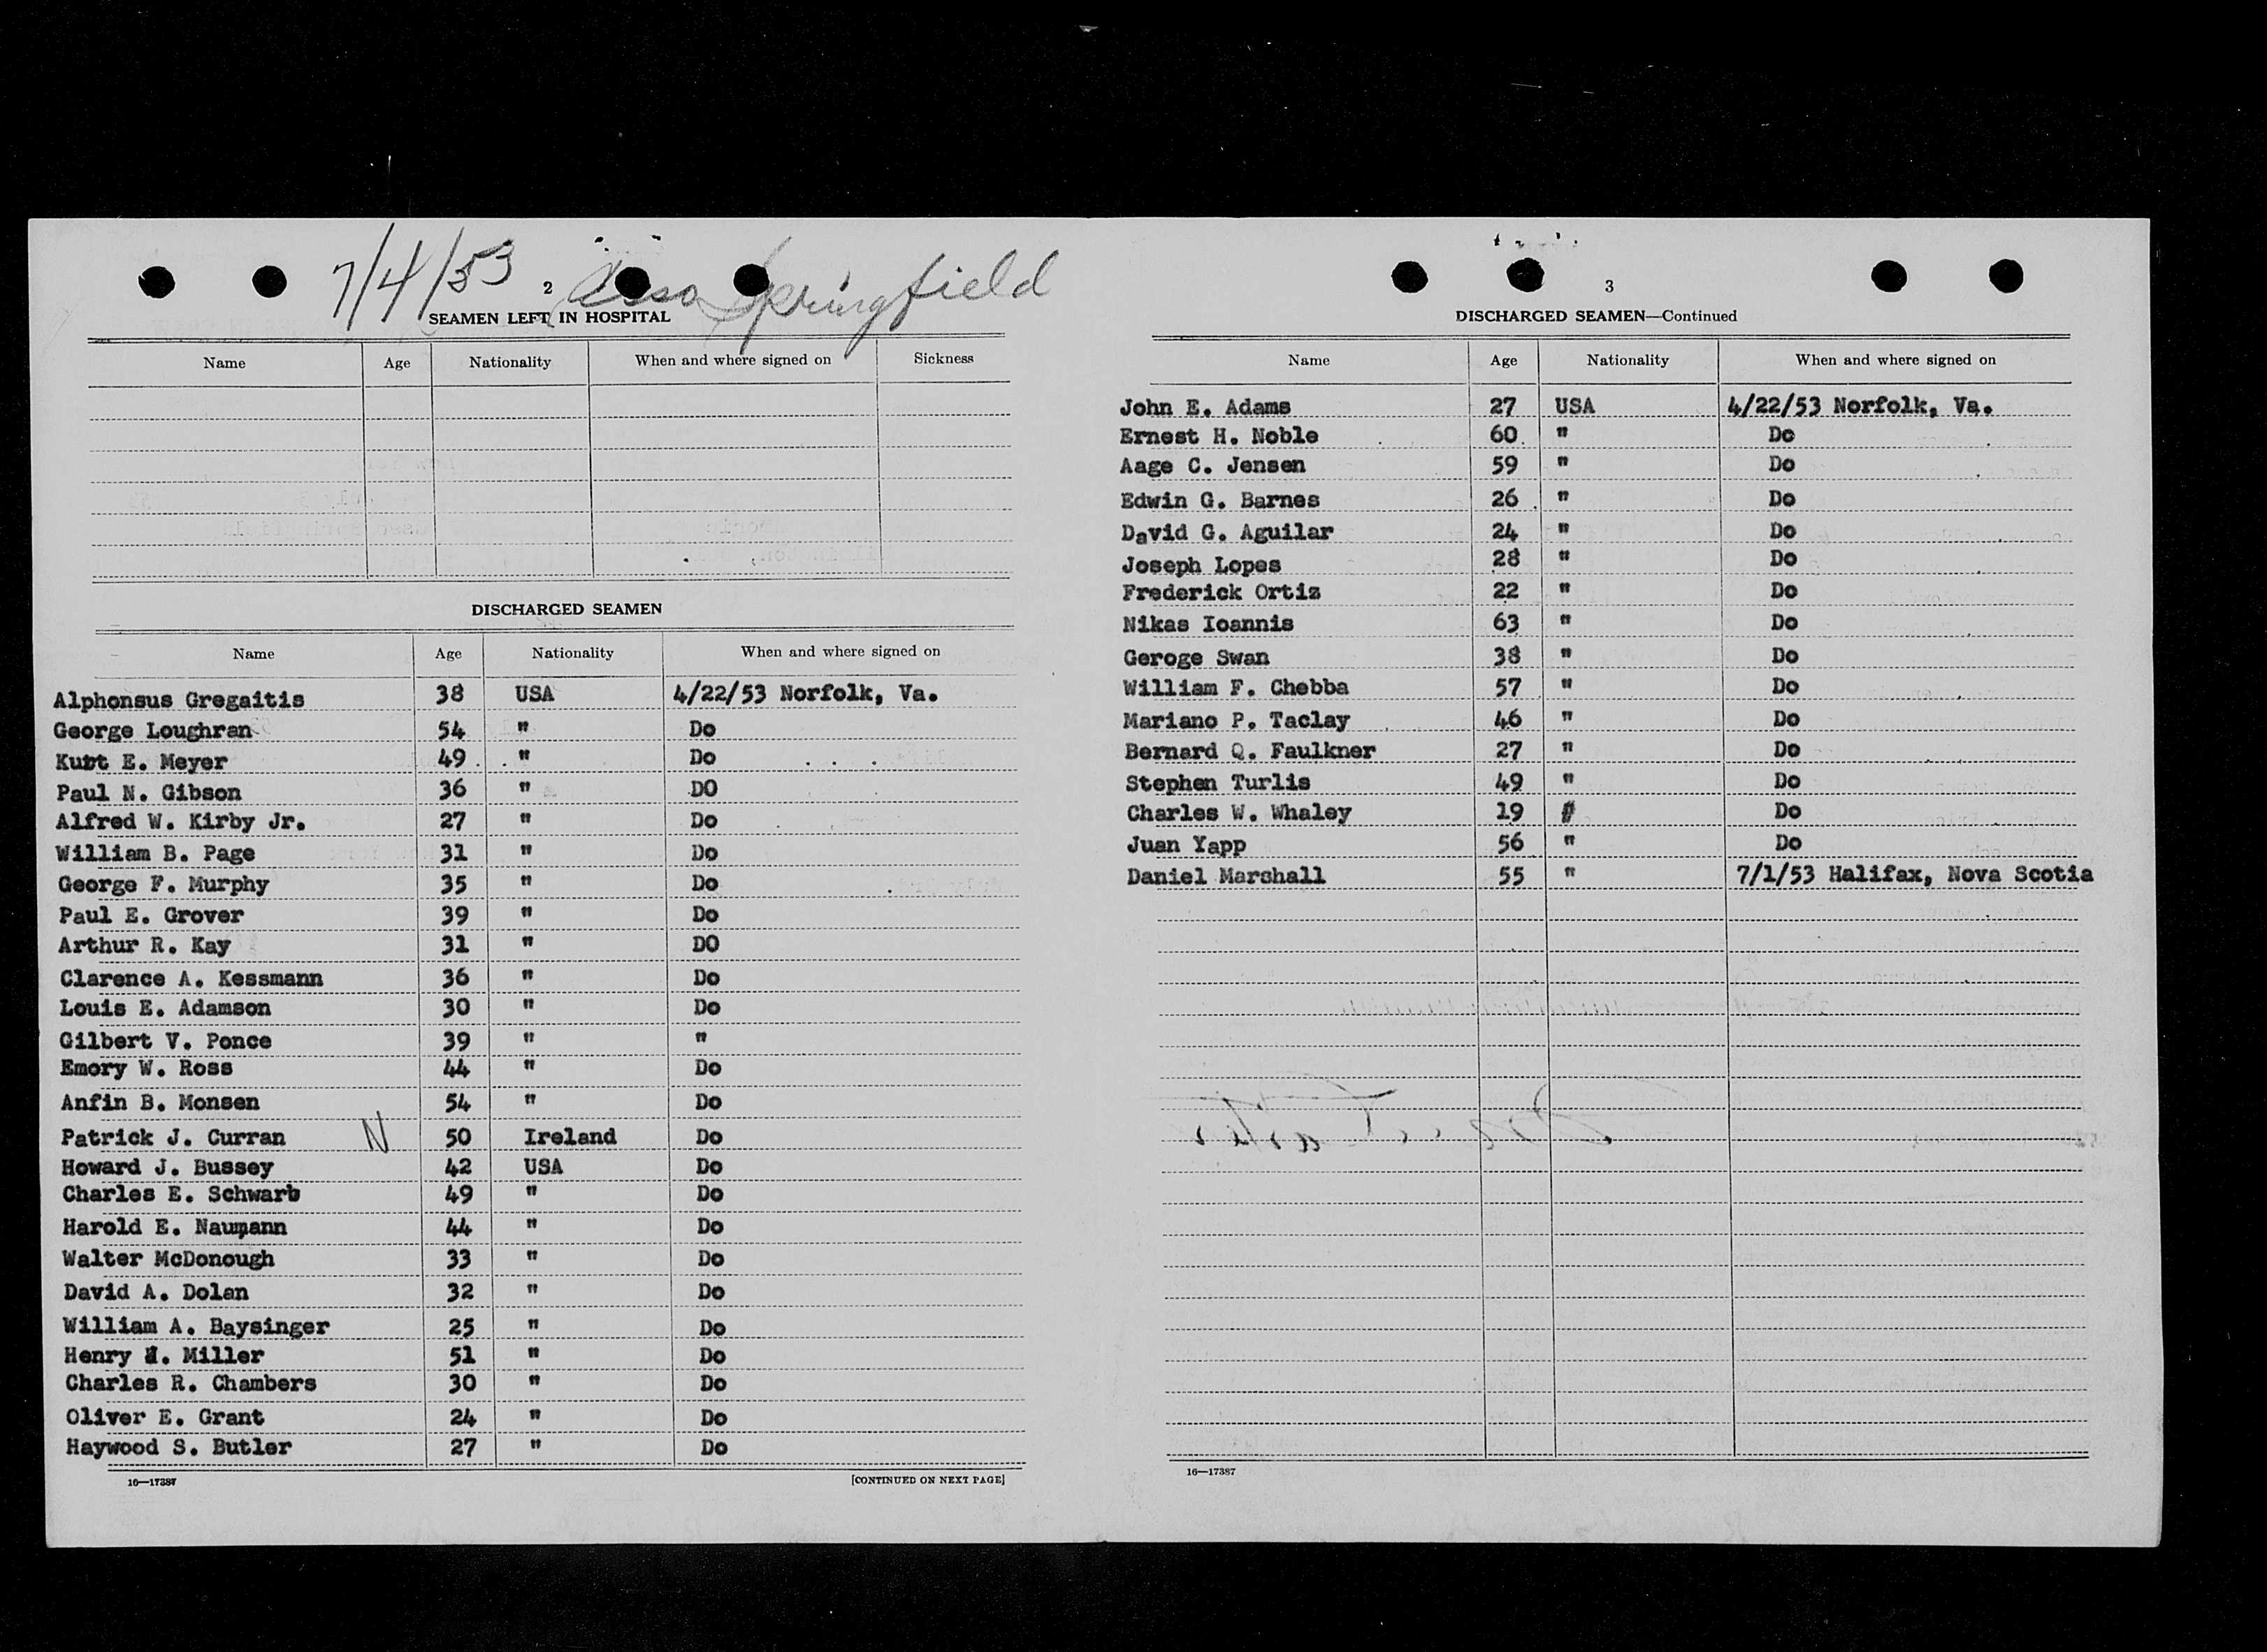 7/4/53 2 Esso Springfield
SEAMEN LEFT IN HOSPITAL
Name Age Nationality When and where signed on Sickness
DISCHARGED SEAMEN
Name Age Nationality When and where signed on
Alphonsus Gregaitis 38 USA 4/22/53 Norfolk, Va.
George Loughran 54 " Do
Kurt E. Meyer 49 " Do
Paul N. Gibson 36 " DO
Alfred W. Kirby Jr. 27 " Do
William B. Page 31 " Do
George F. Murphy 35 " Do
Paul E. Grover 39 " Do
Arthur R. Kay 31 " DO
Clarence A. Kessmann 36 " Do
Louis E. Adamson 30 " Do
Gilbert V. Ponce 39 " "
Emory W. Ross 44 " Do
Anfin B. Monsen 54 " Do
Patrick J. Curran N 50 Ireland Do
Howard J. Bussey 42 USA Do
Charles E. Schwarb 49 " Do
Harold E. Naumann 44 " Do
Walter McDonough 33 " Do
David A. Dolan 32 " Do
William A. Baysinger 25 " Do
Henry Miller 51 " Do
Charles R. Chambers 30 " Do
Oliver E. Grant 24 " Do
Haywood S. Butler 27 " Do
16—17387 [CONTINUED ON NEXT PAGE]
3
DISCHARGED SEAMEN—Continued
Name Age Nationality When and where signed on
John E. Adams 27 USA 4/22/53 Norfolk, Va.
Ernest H. Noble 60 " Do
Aage C. Jensen 59 " Do
Edwin G. Barnes 26 " Do
David G. Aguilar 24 " Do
Joseph Lopes 28 " Do
Frederick Ortiz 22 " Do
Nikas Ioannis 63 " Do
Geroge Swan 38 " Do
William F. Chebba 57 " Do
Mariano P. Taclay 46 " Do
Bernard Q. Faulkner 27 " Do
Stephen Turlis 49 " Do
Charles W. Whaley 19 # Do
Juan Yapp 56 " Do
Daniel Marshall 55 " 7/1/53 Halifax, Nova Scotia
16—17387